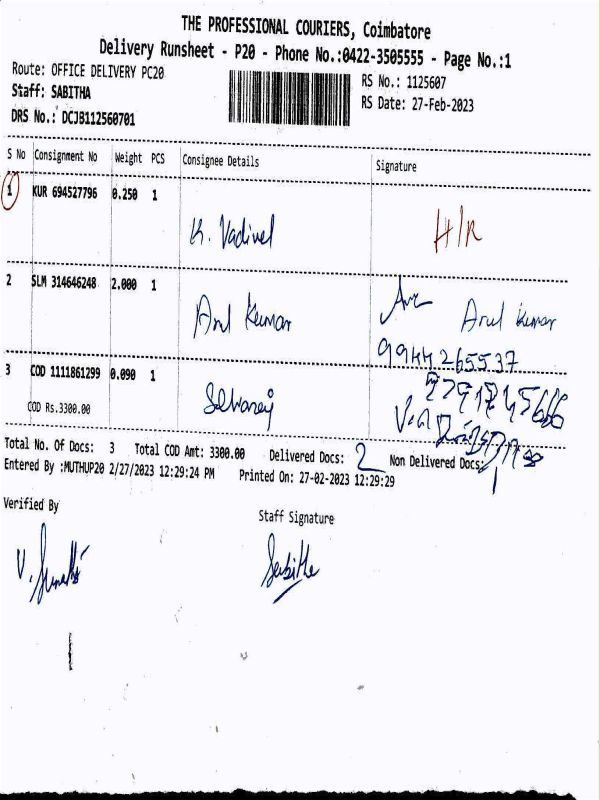 THE PROFESSIONAL COURIERS, Coimbatore
Delivery Runsheet - P20 - Phone No.:0422-3505555 - Page No.:1
Route: OFFICE DELIVERY PC20
RS No.: 1125607
Staff: SABITHA
RS Date: 27-Feb-2023
DRS No.: DCJB112560701
S No Consignment No Weight PCS Consignee Details Signature
1 KUR 694527796 0.250 1
K. Vadivel H/R
2 SLM 314646248 2.000 1
Arul Kumar Arul Kumar
9944265537
3 COD 1111861299 0.090 1
COD Rs.3300.00 Selvaraj
Total No. Of Docs: 3 Total COD Amt: 3300.00 Delivered Docs: 2 Non Delivered Docs: 1
Entered By :MUTHUP20 2/27/2023 12:29:24 PM Printed On: 27-02-2023 12:29:29
Verified By Staff Signature
Sabitha